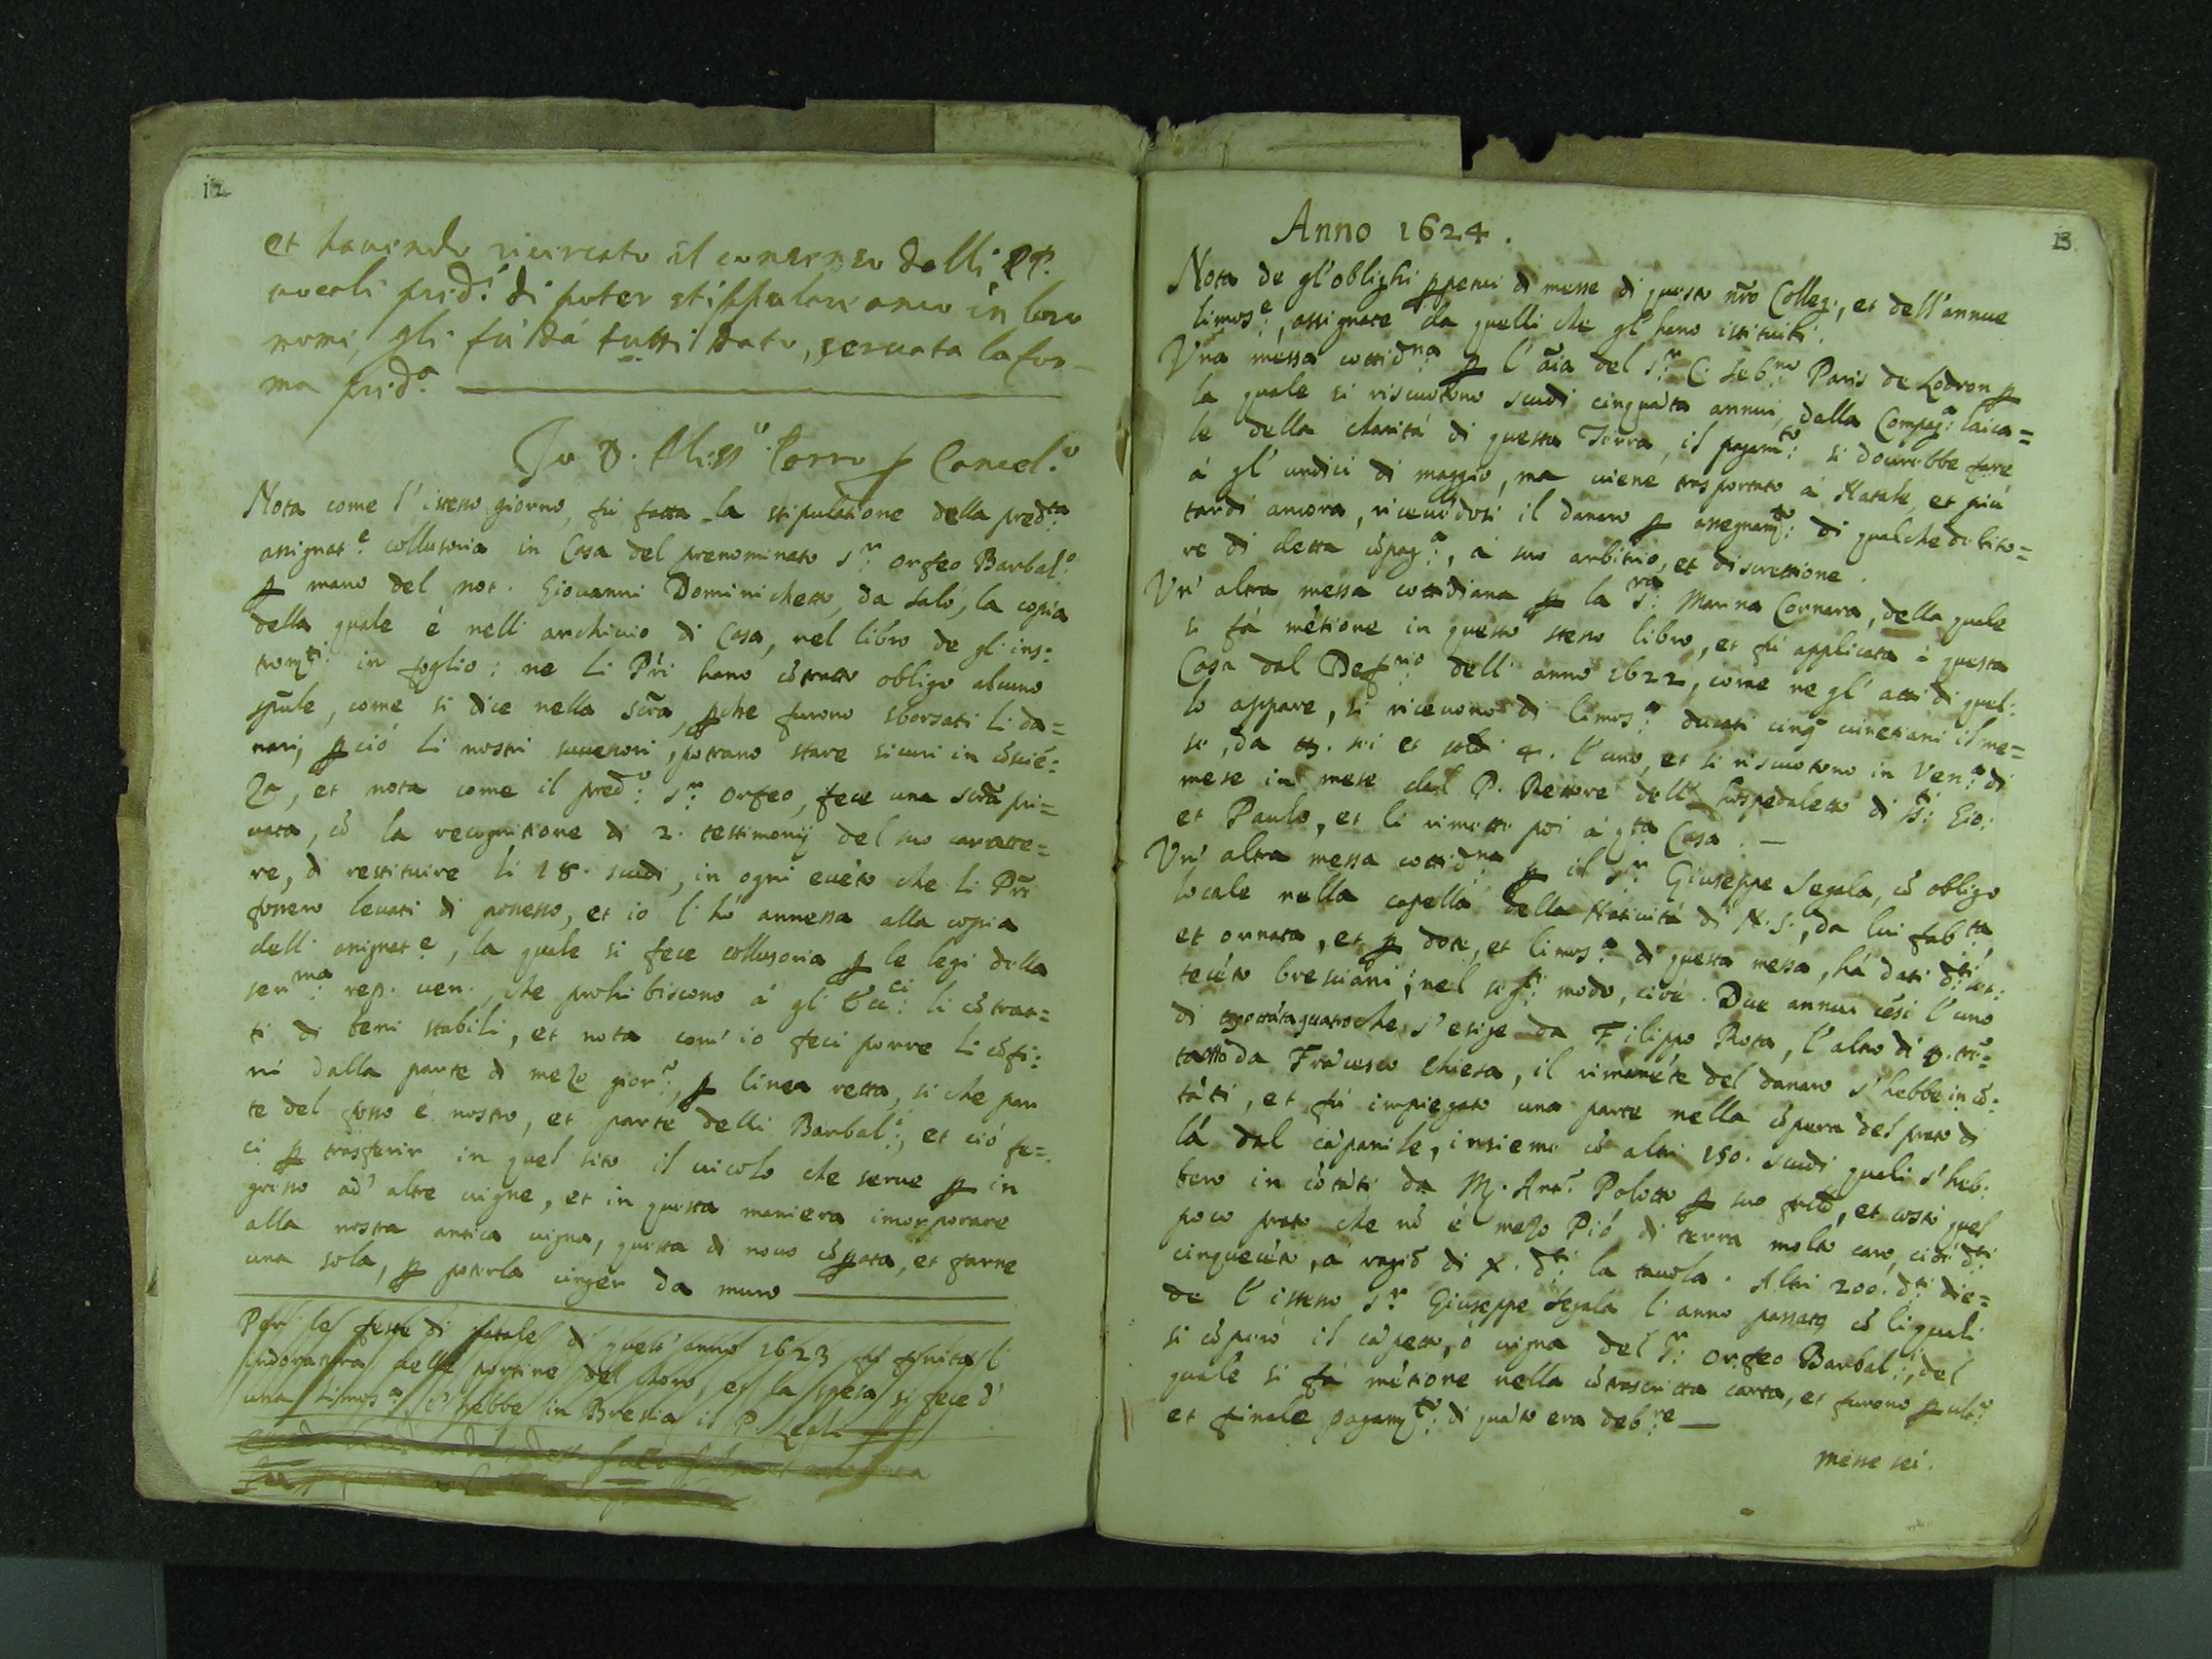 12
et havendo ricircato il consenso dalli PP.
vocali prid.i di poter stippulare anco in loro
nomi, gli fù dá tutti dato, servata la for-
ma prid.a
Io D. Porro p Cancel.o
Nota come l'istesso giorno, fù fatta la stipulatione della pred.ta
assignat.e collusoria in Casa del prenominato S.r Orfeo Barbal.o
p mano del not. Giovanni Dominichetto, da Salò, la copia
della quale è nell' archivio di Casa, nel libro de gl' ins:
trom.ti in foglio: ne li Pri hanò cõtratto obligo alcuno
spũle, come si dice nella scra, pche furono sborsati li da=
nari, p ciò li nostri successori, potrano stare sicuri in cõsciẽ:
za, et nota come il pred.o S.r Orfeo, fece una scrã pri=
vata, cõ la recognitione di 2. testimonij del suo caratte=
re, di restituire li 18. scudi, in ogni evẽto che li Pri
fossero levati di possesso, et io l' hó annessa alla copia
dell' assignat.e, la quale si fece collusoria p le legi della
ser.ma rep. ven., che prohibiscono á gl' Ecc.ci li cõtrat=
ti di beni stabili, et nota com' io feci porre li cõfi:
ni dalla parte di mezo gior.o, p linea retta, si che par
te del fosso é nostro, et parte delli Barbal.i, et ciò fe=
ci p trasferir in quel sito il vicolo che serve p in
gresso ad' altre vigne, et in questa maniera incorporare
alla nostra antica vigna, questa di novo cõprata, et farne
una sola, p poterla cinger da muro
Per le feste di Natale di quest' anno 1623 fù finita l'
indoratura delle portine del choro, et la spesa si fece d'
una limos.a c' hebbe in Brescia il P.
13
Anno 1624.
Nota de gl' oblighi ppetui di messe di questo nrõ Colleg.o, et dell' annue
limos.e, assignate da quelli che gl' hano istituiti.
Una messa cottid.na p l' aĩa del S.r C. Seb.no Paris de Lodron p
la quale si riscuotono scudi cinquàta annui, dalla Compag.a laica=
le della charità di questa Terra, il pagam.to si dovrebbe fare
á gl' undici di maggio, ma viene trasportato á Natale, et più
tardi ancora, ricevẽdosi il danaro p assegnam.to di qualche debito=
re di detta cõpag.a, á suo arbitrio, et discrettione.
Un' altra messa cottidiana p la S.ra Marina Cornara, della quale
si fá mẽtione in questo stesso libro, et fù applicata á questa
Casa dal Def.rio dell' anno 1622, come ne gl' atti di quel:
lo appare, si ricevono di limos.a ducati cinq.e vinetiani il me=
se, da sei et soldi 4. l' uno, et si riscuotono in Ven.a di
mese in mese dal P. Rettore dell' hospedaletto di S.ti Gio:
et Paulo, et li rimette poi á q.ta Casa. -
Un' altra messa cottid.na p il S.r Giuseppe Segala, cõ obligo
locale nella capella della Natività di N. S., da lui fab.ta,
et ornata, et p dote, et limos.a di questa messa, há dati d.ti set:
tecẽto bresciani; nel seg.te modo, cioè. Due annui cẽsi l' uno
di trẽtaquatro che s' esige da Filippo Rota, l' altro di trẽ=
taotto da Frãcesco Chiesa, il rimanẽte del danaro s' hebbe in cõ:
tãti, et fù impiegato una parte nella cõpera del prato di
lá dal cãpanile, insieme cõ altri 150. scudi quali s' heb:
bero in cõtãti da M. Ant.o Polotto p suo, et costò quel
poco prato che nõ é mezo Pió, di terra molto caro, cioè d.ti
cinquecẽto, á ragiõ di X. d.ti la tavola. Altri 200. d.ti die=
de l' istesso S.r Giuseppe Segala l' anno passato cõ li quali
si cõperò il cãpetto, ó vigna del S.r Orfeo Barbal.i, del
quale si fá mẽtione nella cõtrascritta carta, et furono p ult.o
et finale pagam.to di quãto era deb.re
messe sei.